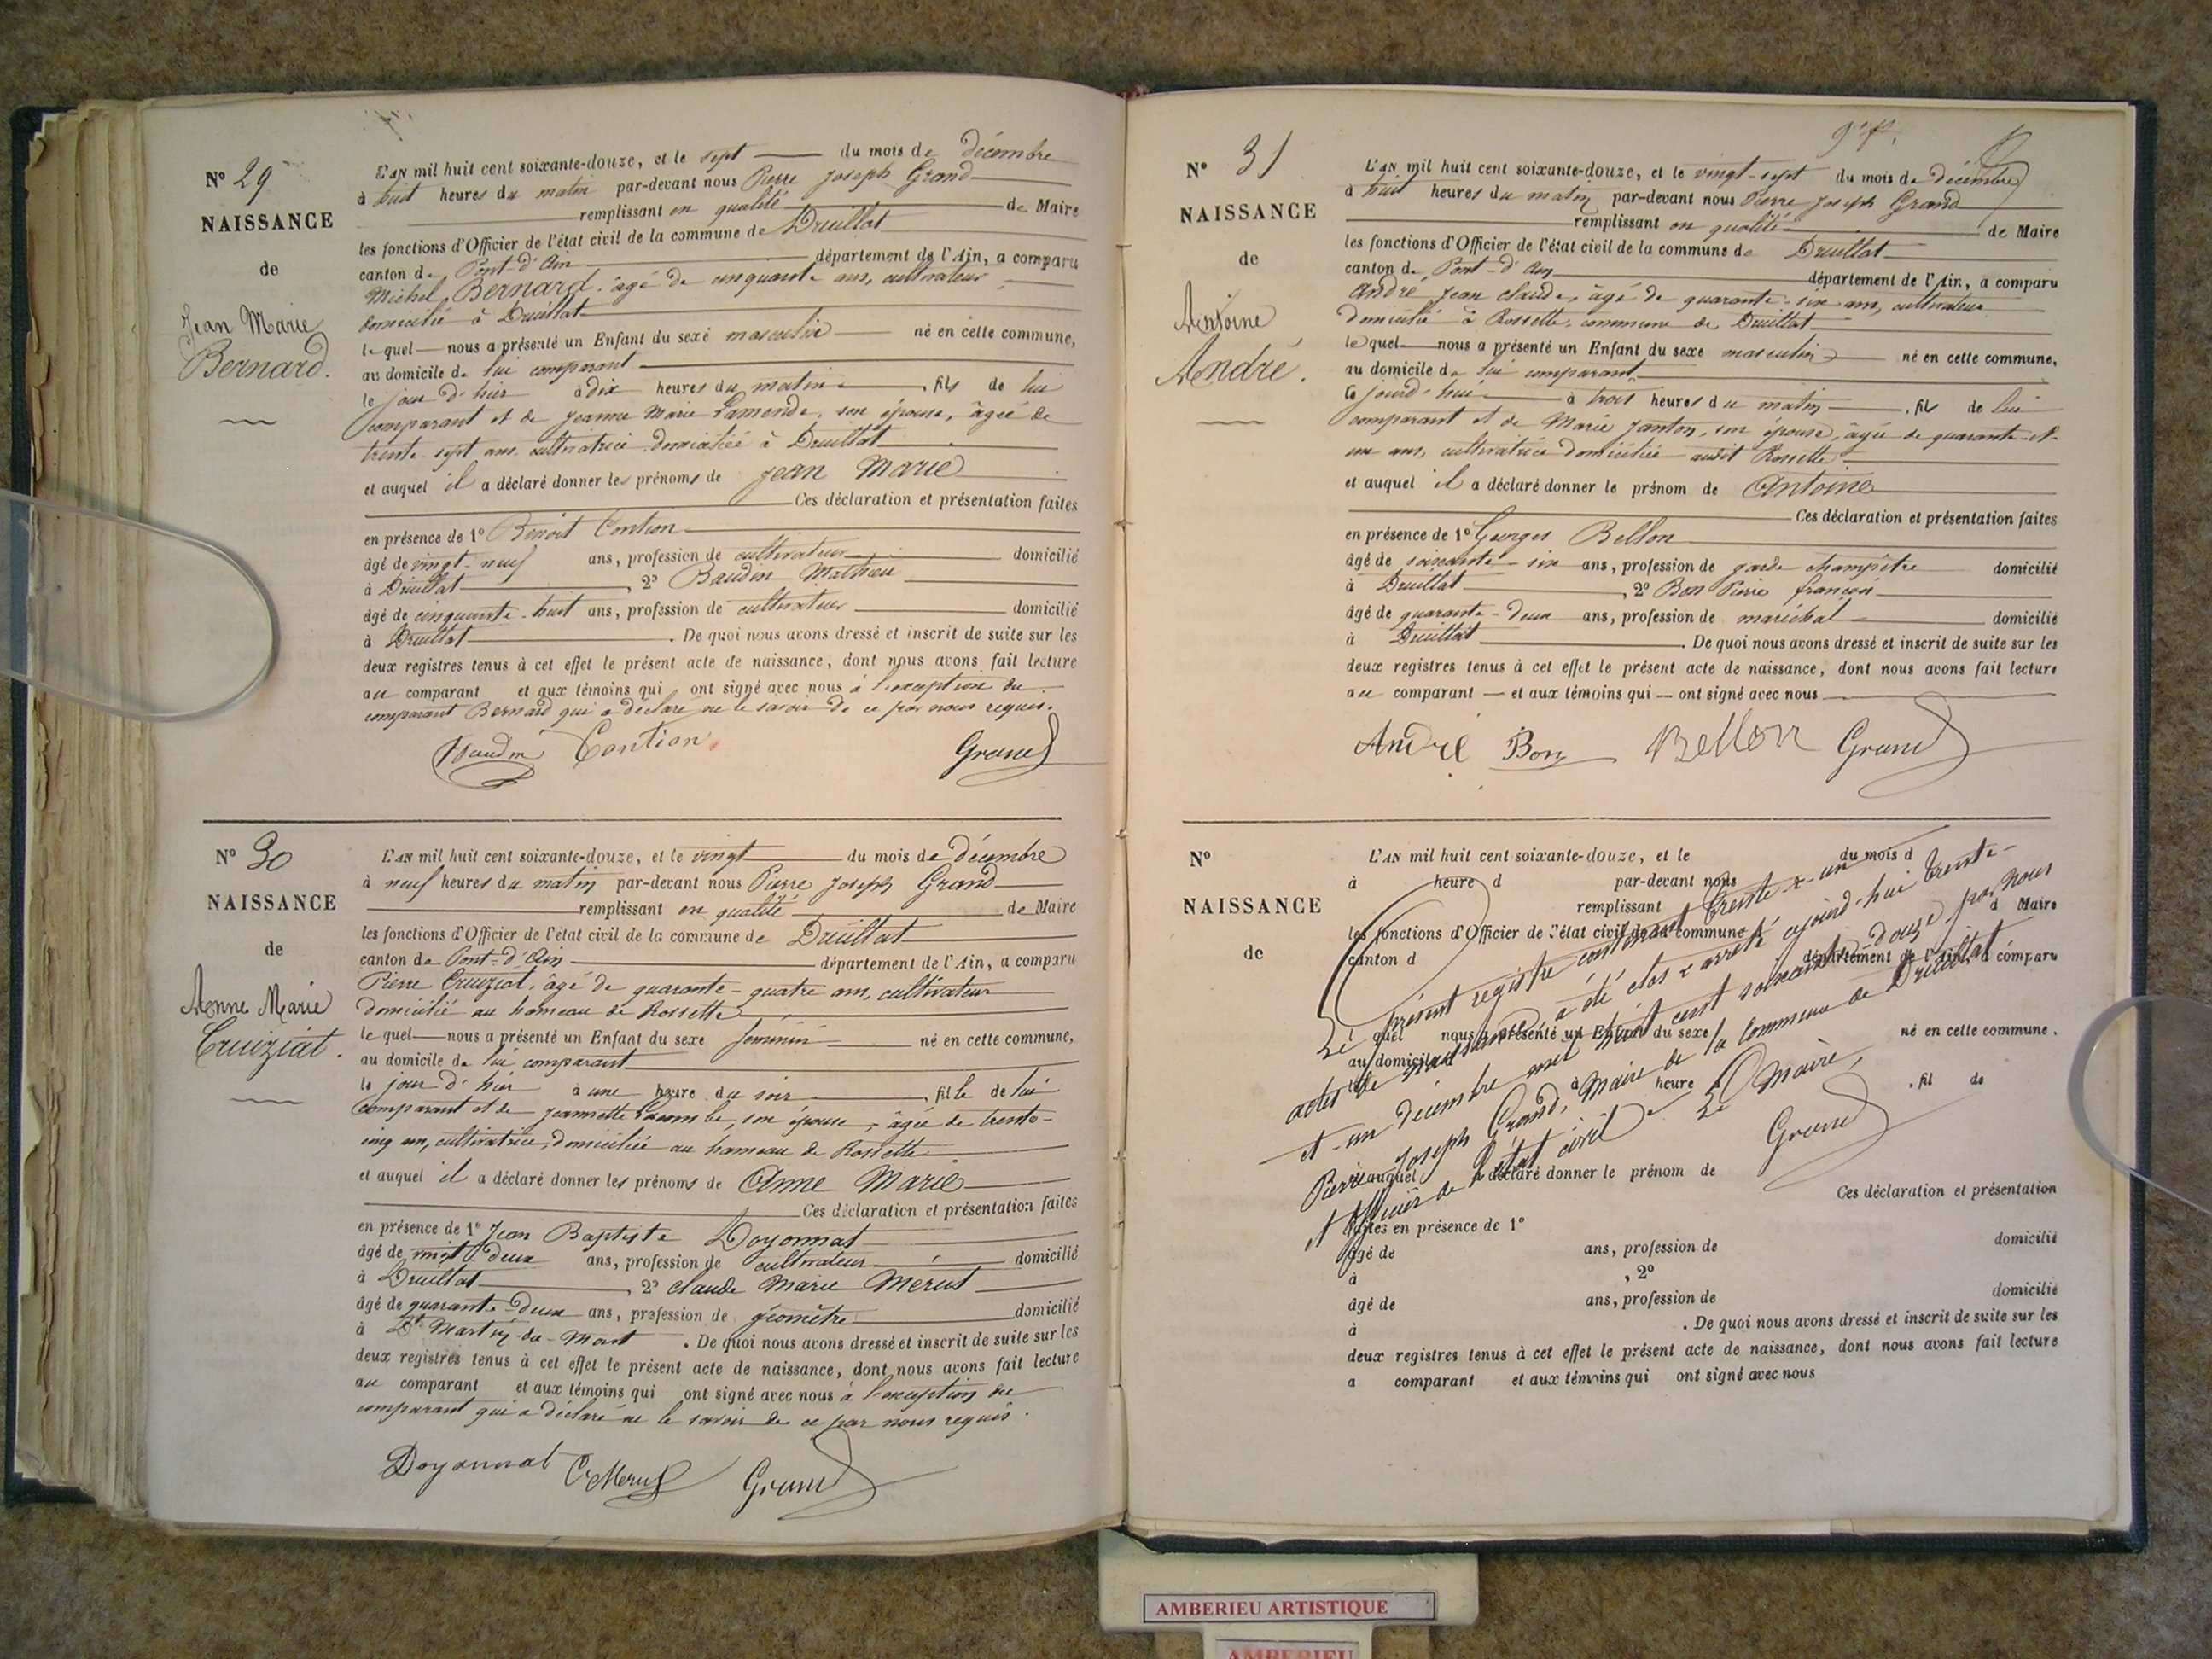 N° 29
NAISSANCE
de
Jean Marie
Bernard.
L'AN mil huit cent soixante-douze, et le sept du mois de décembre
à huit heures du matin par-devant nous Pierre Joseph Grand
remplissant en qualité de Maire
les fonctions d'Officier de l'état civil de la commune de Druillat
canton de Pont-d'Ain département de l'Ain, a comparu
Michel Bernard, âgé de cinquante ans, cultivateur
domicilié à Druillat
lequel nous a présenté un Enfant du sexe masculin né en cette commune,
au domicile de lui comparant
le jour d'hier à dix heures du matin, fils de lui
comparant et de Jeanne Marie Lamende, son épouse, âgée de
trente-sept ans, cultivatrice domiciliée à Druillat
et auquel il a déclaré donner les prénoms de Jean Marie
Ces déclaration et présentation faites
en présence de 1° Benoit Contion
âgé de vingt-neuf ans, profession de cultivateur domicilié
à Druillat, 2° Baudin Mathieu
âgé de cinquante-huit ans, profession de cultivateur domicilié
à Druillat. De quoi nous avons dressé et inscrit de suite sur les
deux registres tenus à cet effet le présent acte de naissance, dont nous avons fait lecture
au comparant et aux témoins qui ont signé avec nous à l'exception du
comparant Bernard qui a déclaré ne le savoir de ce par nous requis.
Baudin Contion Grand
N° 30
NAISSANCE
de
Anne Marie
Cruiziat.
L'AN mil huit cent soixante-douze, et le vingt du mois de décembre
à neuf heures du matin par-devant nous Pierre Joseph Grand
remplissant en qualité de Maire
les fonctions d'Officier de l'état civil de la commune de Druillat
canton de Pont-d'Ain département de l'Ain, a comparu
Pierre Cruiziat, âgé de quarante-quatre ans, cultivateur
domicilié au hameau de Rossette
lequel nous a présenté un Enfant du sexe féminin né en cette commune,
au domicile de lui comparant
le jour d'hier à une heure du soir, fille de lui
comparant et de Jeannette son épouse, âgée de trente-
cinq ans, cultivatrice, domiciliée au hameau de Rossette
et auquel il a déclaré donner les prénoms de Anne Marie
Ces déclaration et présentation faites
en présence de 1° Jean Baptiste Doyonnat
âgé de vingt deux ans, profession de cultivateur domicilié
à Druillat, 2° Claude Marie Merut
âgé de quarante-deux ans, profession de géomètre domicilié
à St Martin-du-Mont. De quoi nous avons dressé et inscrit de suite sur les
deux registres tenus à cet effet le présent acte de naissance, dont nous avons fait lecture
au comparant et aux témoins qui ont signé avec nous à l'exception du
comparant qui a déclaré ne le savoir de ce par nous requis.
Doyonnat Merut Grand
N° 31
NAISSANCE
de
Antoine
André.
L'AN mil huit cent soixante-douze, et le vingt-sept du mois de décembre
à huit heures du matin par-devant nous Pierre Joseph Grand
remplissant en qualité de Maire
les fonctions d'Officier de l'état civil de la commune de Druillat
canton de Pont-d'Ain département de l'Ain, a comparu
André Jean Claude, âgé de quarante-six ans, cultivateur
domicilié à Rossette, commune de Druillat
lequel nous a présenté un Enfant du sexe masculin né en cette commune,
au domicile de lui comparant
le jourd'hui à trois heures du matin, fils de lui
comparant et de Marie Janton, son épouse, âgée de quarante-et-
un ans, cultivatrice domiciliée audit Rossette
et auquel il a déclaré donner le prénom de Antoine
Ces déclaration et présentation faites
en présence de 1° Georges Bellon
âgé de soixante-six ans, profession de garde champêtre domicilié
à Druillat, 2° Bon Pierre françois
âgé de quarante-deux ans, profession de maréchal domicilié
à Druillat. De quoi nous avons dressé et inscrit de suite sur les
deux registres tenus à cet effet le présent acte de naissance, dont nous avons fait lecture
au comparant et aux témoins qui ont signé avec nous
André Bon Bellon Grand
N°
NAISSANCE
de
L'AN mil huit cent soixante-douze, et le du mois d
à heure d par-devant nous
remplissant d Maire
les fonctions d'Officier de l'état civil de la commune d
canton d département de l'Ain, a comparu
le quel nous a présenté un Enfant du sexe né en cette commune.
au domicile d
le à heure d , fil de
Le présent registre contenant trente & un
actes de naissance, a été clos & arrêté aujourd'hui trente-
et-un décembre mil huit cent soixante-douze par nous
Pierre Joseph Grand, Maire de la commune de Druillat
et officier de l'état civil
Le Maire,
Grand
et auquel a déclaré donner le prénom de
Ces déclaration et présentation
faites en présence de 1°
âgé de ans, profession de domicilié
à , 2°
âgé de ans, profession de domicilié
à . De quoi nous avons dressé et inscrit de suite sur les
deux registres tenus à cet effet le présent acte de naissance, dont nous avons fait lecture
a comparant et aux témoins qui ont signé avec nous
AMBERIEU ARTISTIQUE
AMBERIEU